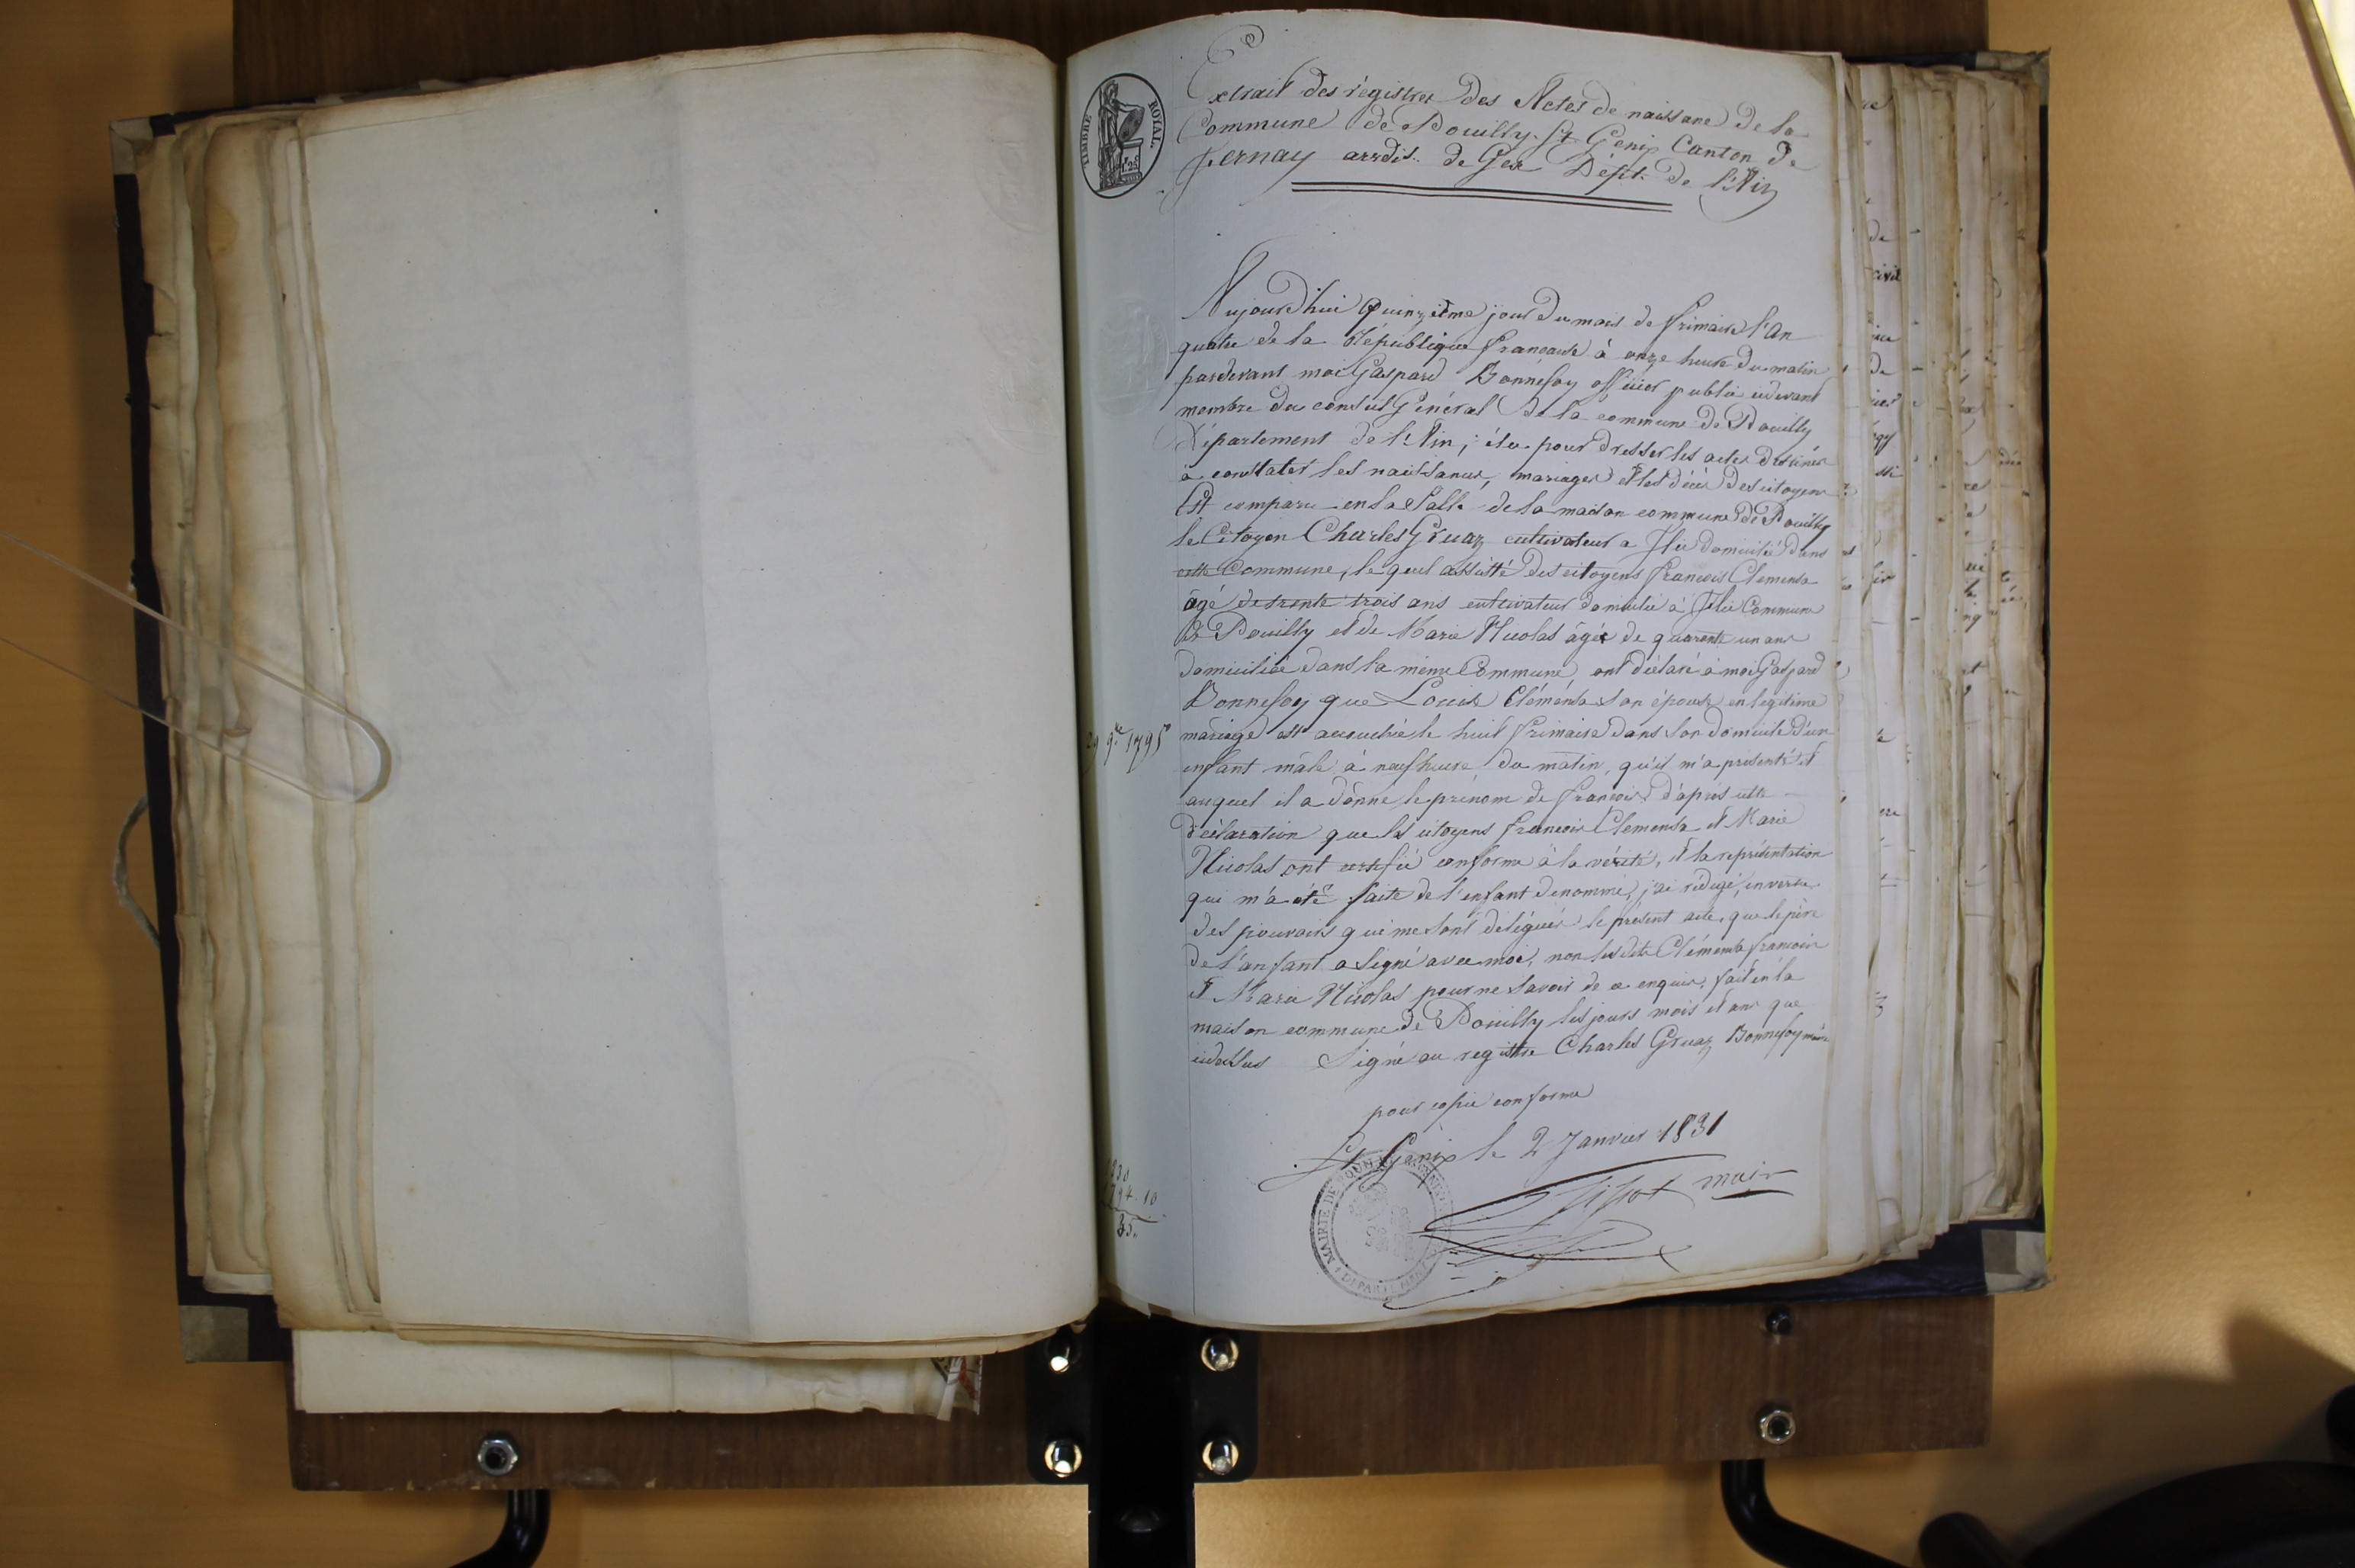 TIMBRE ROYAL
1.25
Extrait des régistres des Actes de naissance de la
Commune de Pouilly-St Genix Canton de
fernay arrdis. de Gex Dépt. de l'Ain
Aujourd'hui quinzième jour du mois de frimaire l'an
quatre de la République francaise à onze heure du matin
pardevant moi Gaspard Bonnefoy officier public cidevant
membre du conseil Général de la commune de Pouilly
Département de l'Ain, élu pour dresser les actes destinés
à constater les naissances, mariages et les décès des citoyens
Est comparu en la Salle de la maison commune de Pouilly
le Citoyen Charles Gruaz cultivateur a flie domicilié dans
cette Commune, le quel assisté des citoyens francois Clemensa
âgé de trente trois ans cultivateur domicilié à flie Commune
de Pouilly et de Marie Nicolas âgée de quarente un ans
domiciliée dans la même Commune, ont déclaré à moi Gaspard
Bonnefoy que Louise Clémensa son épouse en légitime
mariage est accouchée le huit frimaire dans son domicile d'un
29 9bre 1795
enfant mâle à neuf heure du matin, qu'il m'a présenté et
auquel il a donné le prénom de francois d'après cette
déclaration que les citoyens francois Clemensa et Marie
Nicolas ont certifié conforme à la vérité, et la représentation
qui m'a été faite de l'enfant denommé, j'ai rédigé, en vertu
des pouvoirs qui me sont délégués le présent acte, que le père
de l'enfant a signé avec moi, non lesdits Clémensa francois
et Marie Nicolas pour ne savoir de ce enquis, fait en la
maison commune de Pouilly les jours mois et ans que
cidessus Signé au registre Charles Gruaz Bonnefoy maire
pour copie conforme
St Genix le 2 Janvier 1831
maire
MAIRIE DE
DEPARTEMENT
35.